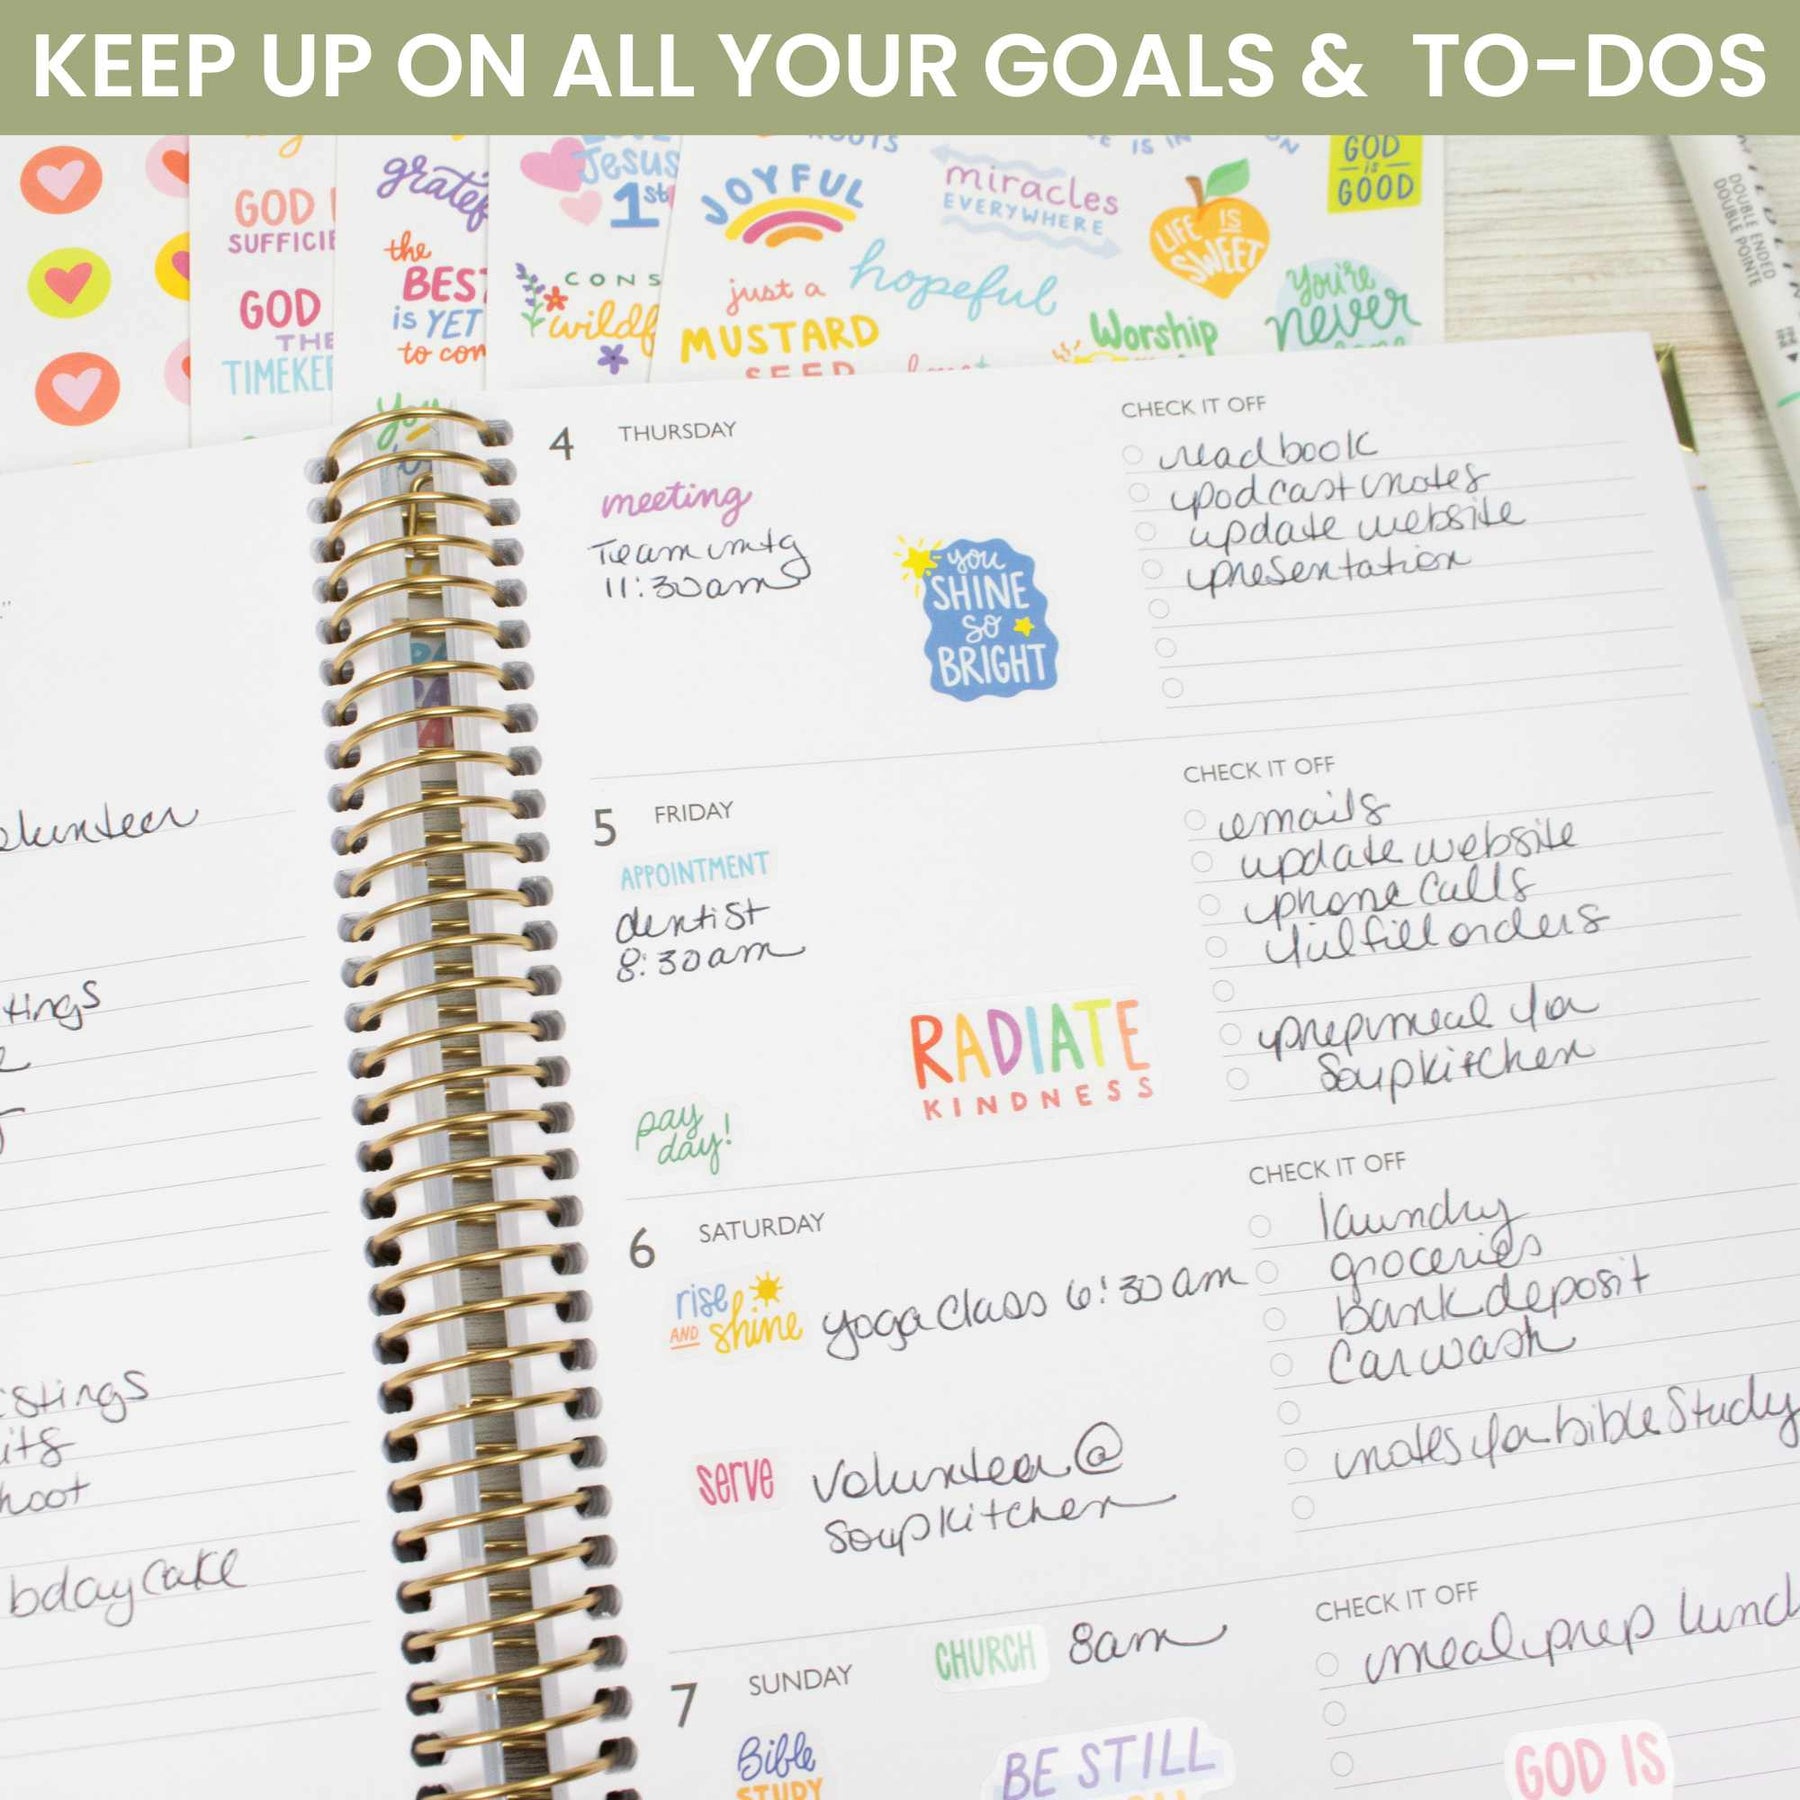 KEEP UP ON ALL YOUR GOALS & TO-DOS
GOD
SUFFICIE
GOD
THE
TIMEKEE
grateful
the
BEST
is YET
to com
you
Jesus
1st
CONS
wildf
JOYFUL
just a
MUSTARD
SEED
miracles
EVERYWHERE
hopeful
Worship
LIFE IS
SWEET
GOD
is
GOOD
You're
never
DOUBLE ENDED
DOUBLE POINTE
olunteer
tings
istings
its
hoot
bday cake
4 THURSDAY
meeting
Team mtg
11:30am
you
SHINE
so
BRIGHT
CHECK IT OFF
read book
podcast notes
update website
presentation
5 FRIDAY
APPOINTMENT
dentist
8:30am
pay
day!
RADIATE
KINDNESS
CHECK IT OFF
emails
update website
phone calls
fulfill orders
prep meal for
soup kitchen
6 SATURDAY
rise
AND shine
yoga class 6:30am
serve
volunteer @
soup kitchen
CHECK IT OFF
laundry
groceries
bank deposit
car wash
notes for bible study
7 SUNDAY
CHURCH 8am
Bible
STUDY
BE STILL
CHECK IT OFF
meal prep lunch
GOD IS